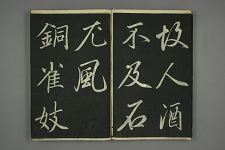 故人酒
不及石
尤風
銅雀妓